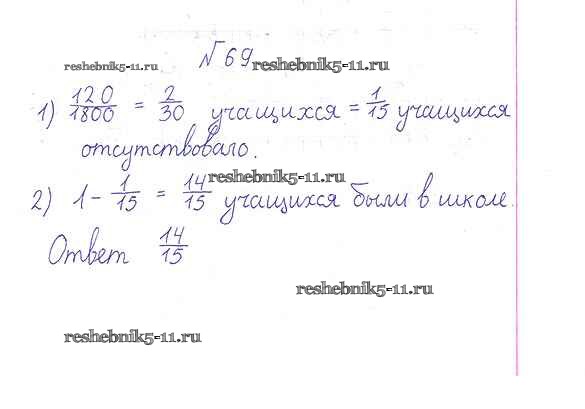 №69
reshebnik5-11.ru reshebnik5-11.ru
1) 120/1800 = 2/30 учащихся = 1/15 учащихся
отсутствовало.
reshebnik5-11.ru
2) 1 - 1/15 = 14/15 учащихся были в школе.
Ответ 14/15
reshebnik5-11.ru
reshebnik5-11.ru